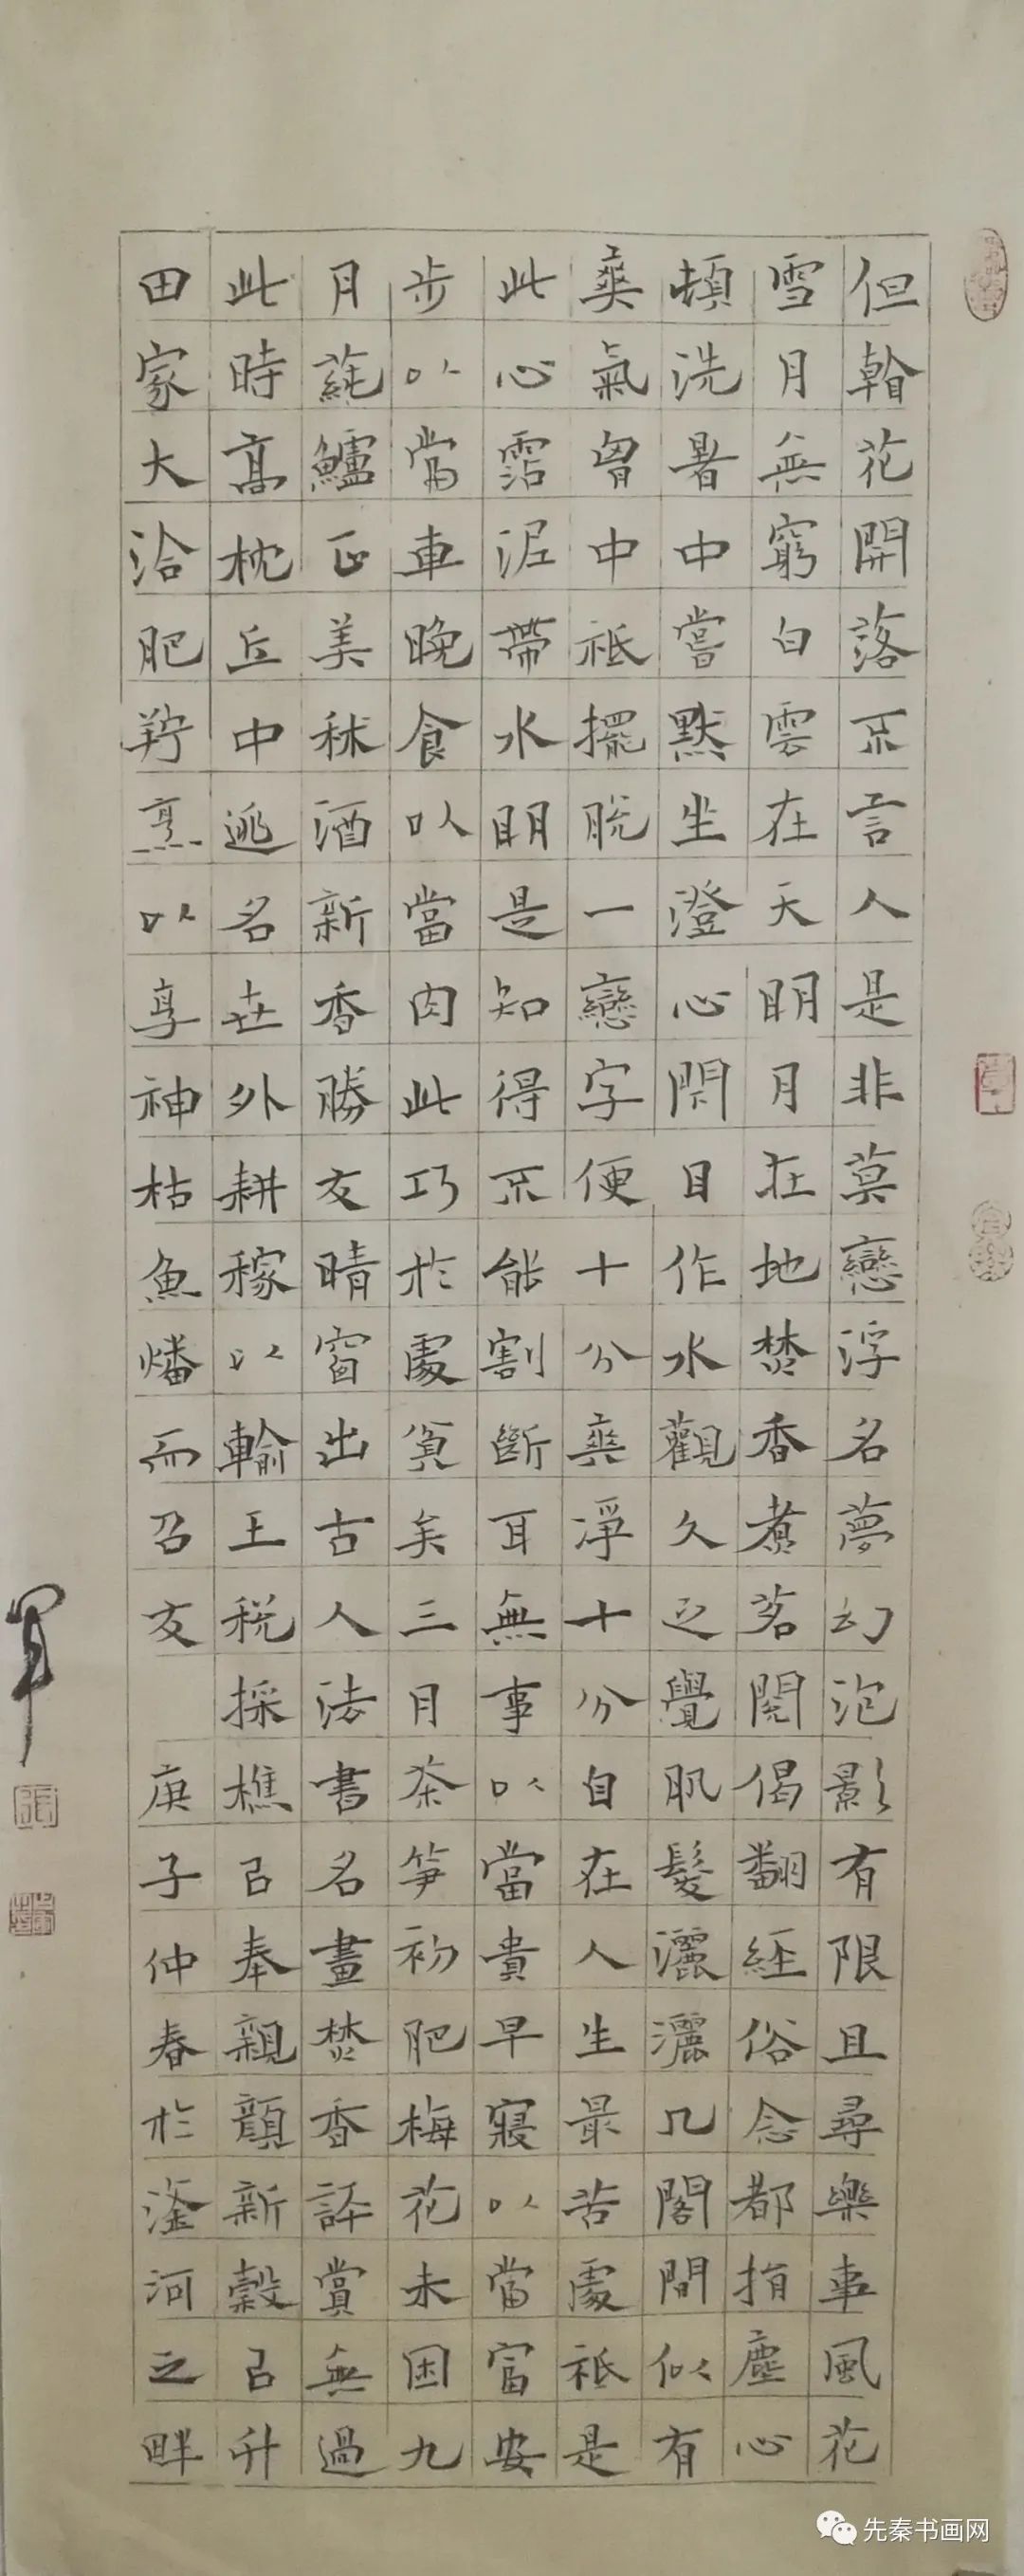 但看花開落不言人是非莫戀浮名夢幻泡影有限且尋樂事風花
雪月無窮白雲在天明月在地焚香煮茗閱偈翻經俗念都捐塵心
頓洗暑中嘗默坐澄心閉目作水觀久之覺肌髮灑灑几閣間似有
爽氣胷中祗擺脫一戀字便十分爽淨十分自在人生最苦處祗是
此心霑泥帶水明是知得不能割斷耳無事以當貴早寢以當富安
步以當車晚食以當肉此巧於處貧矣三月茶筍初肥梅花未困九
月蒓鱸正美秫酒新香勝友晴窗出古人法書名畫焚香評賞無過
此時高枕丘中逃名世外耕稼以輸王税採樵㠯奉親顏新穀㠯升
田家大洽肥羜烹以享神枯魚燔而召友 庚子仲春於滏河之畔
軍
先秦书画网